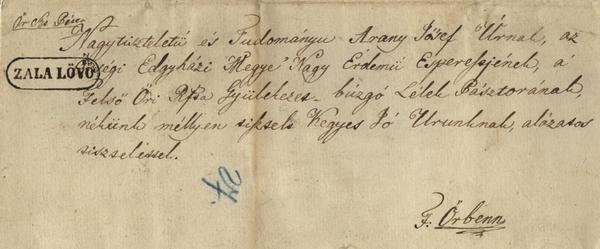 Nagytiszteletű és Tudományu Arany Jósef Úrnak, az
ZALA LÖVŐ
Őrségi Edgyházi Megye Nagy Érdemű Esperessjének, a
Felső Őri Rfta Gyülekezet buzgó Lelek Pásztorának,
nékünk méllyen tisztelt Kegyes Jó Urunknak, alázatos
tisztelettel.
F: Őrbenn